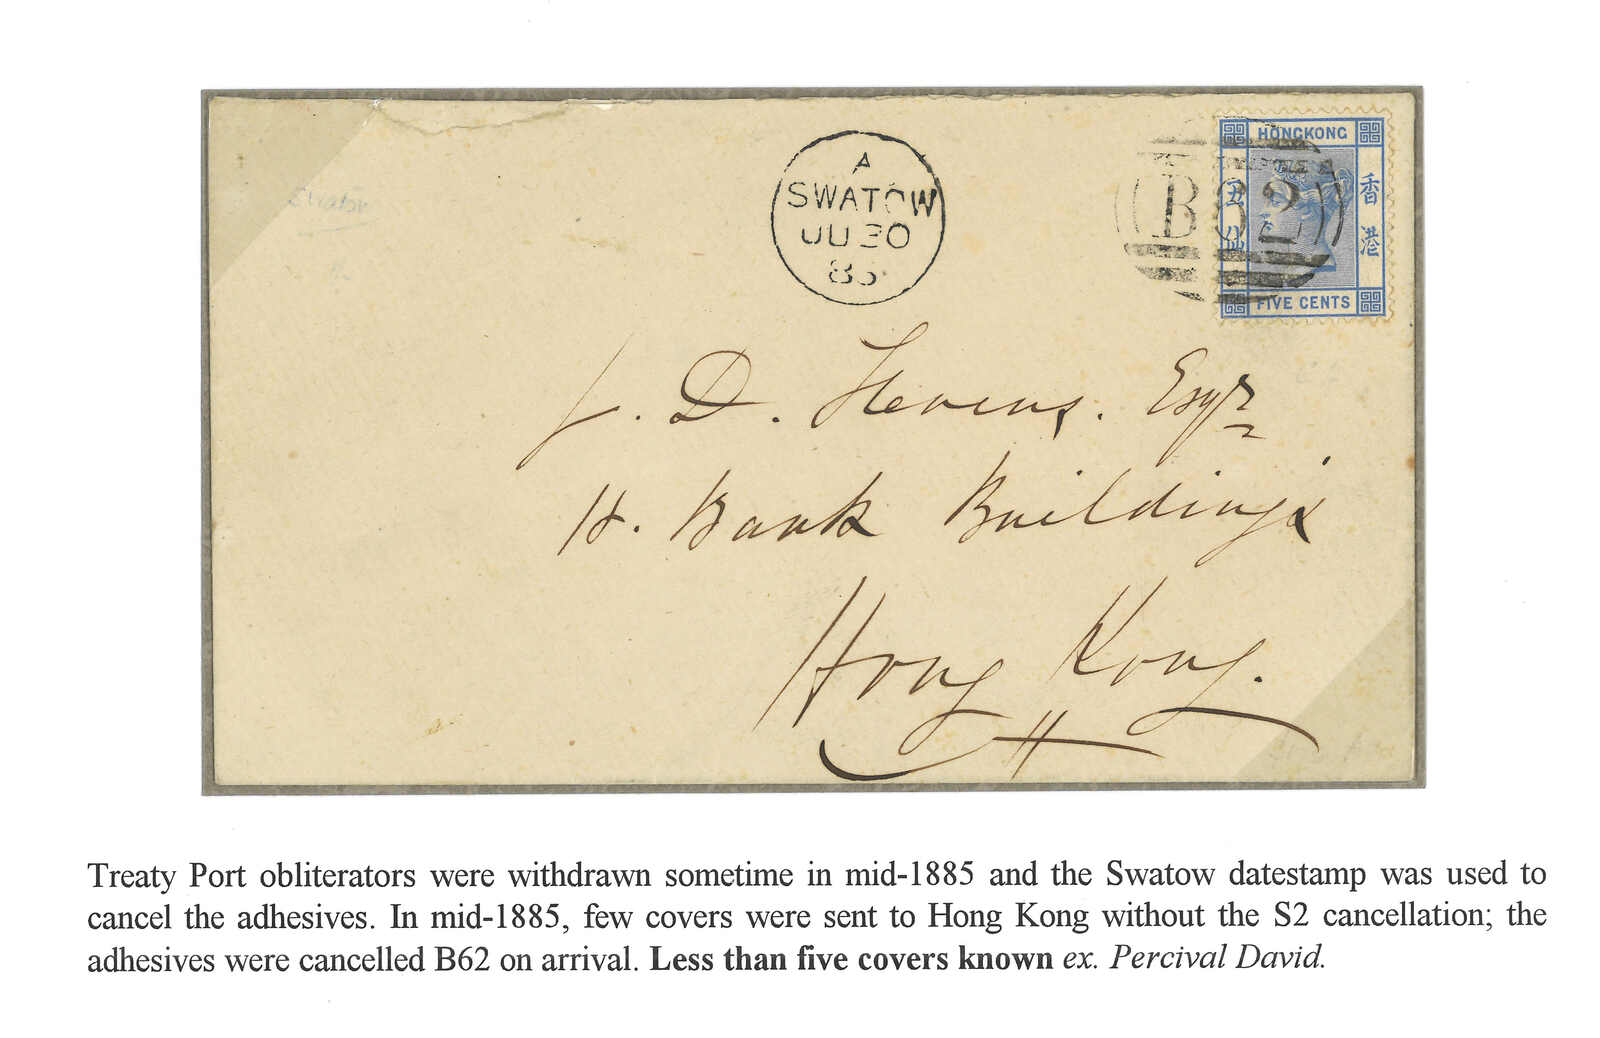 A
SWATOW
JU 30
85
B62
HONGKONG
香港
五仙
FIVE CENTS
J. D. Stevens. Esqr
H. Bank Buildings
Hong Kong.
Treaty Port obliterators were withdrawn sometime in mid-1885 and the Swatow datestamp was used to
cancel the adhesives. In mid-1885, few covers were sent to Hong Kong without the S2 cancellation; the
adhesives were cancelled B62 on arrival. Less than five covers known ex. Percival David.